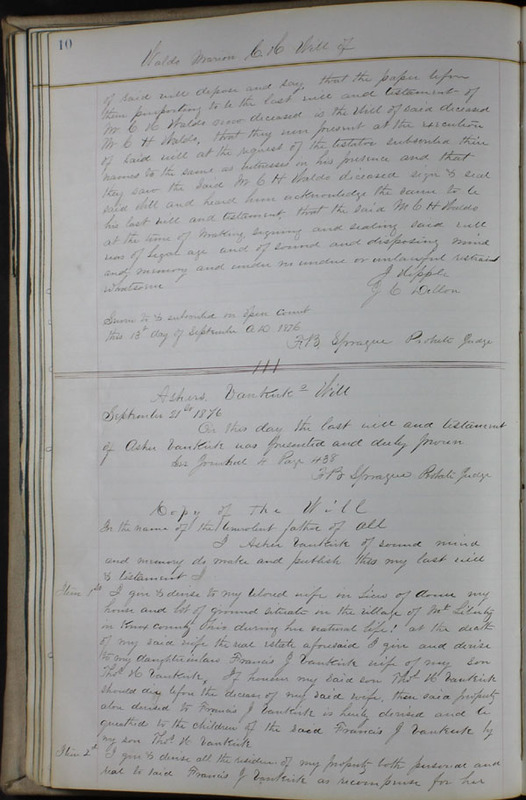 10
Waldo Marion C. H. Will of
of said will depose and say that the paper before
them purporting to be the last will and testament of
M C H Waldo now deceased is the Will of said deceased
M C H Waldo, that they were present at the execution
of said will at the request of the testator subscribed their
names to the same as witnesses in his presence and that
they saw the said M C H Waldo diceased sign & seal
said Will and heard him acknowledge the same to be
his last will and testament, that the said M C H Waldo
at the time of making signing and sealing said will
was of legal age and of sound and disposing mind
and memory and under no undue or unlawful restraint
whatsoever
J Hipple
C Dillon
Sworn to & subscribed in open Court
this 13th day of September A.D 1876
F B Sprague Probate Judge
Ashers Vankirks Will
September 21st 1876
On this day the last will and testament
of Asher Vankirk was Presented and duly proven
See Journal 4 Page 438
F B Sprague Probate Judge
Copy of The Will
In the name of the benevolent father of all
I Asher Vankirk of sound mind
and memory do make and publish this my last will
& testament
Item 1st I give & devise to my beloved wife in Lieu of dower my
house and lot of ground situate in the village of Mt Liberty
in Knox County Ohio during her natural life! at the death
of my said wife the real estate aforesaid I give and devise
to my daughter in law Francis J Vankirk wife of my son
Thos H Vankirk. If however my said son Thos H Vankirk
should die before the decease of my said wife, then said property
above devised to Francis J Vankirk is hereby devised and be
queathed to the children of the said Francis J Vankirk by
my son Thos H Vankirk
Item 2d I give & devise all the residue of my property both personal and
real to said Francis J Vankirk as recompense for her